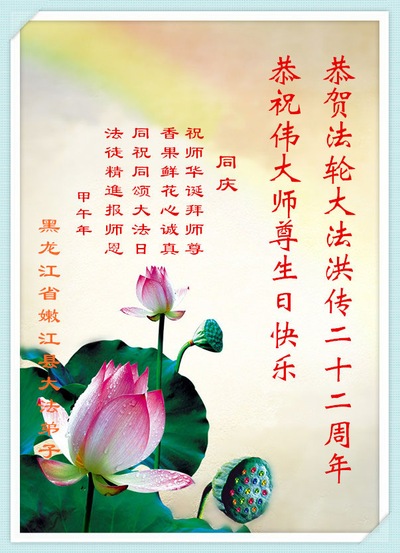 恭贺法轮大法洪传二十二周年
恭祝伟大师尊生日快乐
同庆
祝师华诞拜师尊
香果鲜花心诚真
同祝同颂大法日
法徒精進报师恩
甲午年
黑龙江省嫩江县大法弟子